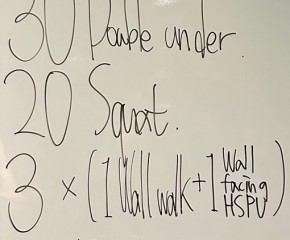 30 Double under.
20 Squat.
3 × (1 Wall walk + 1 Wall facing HSPU)